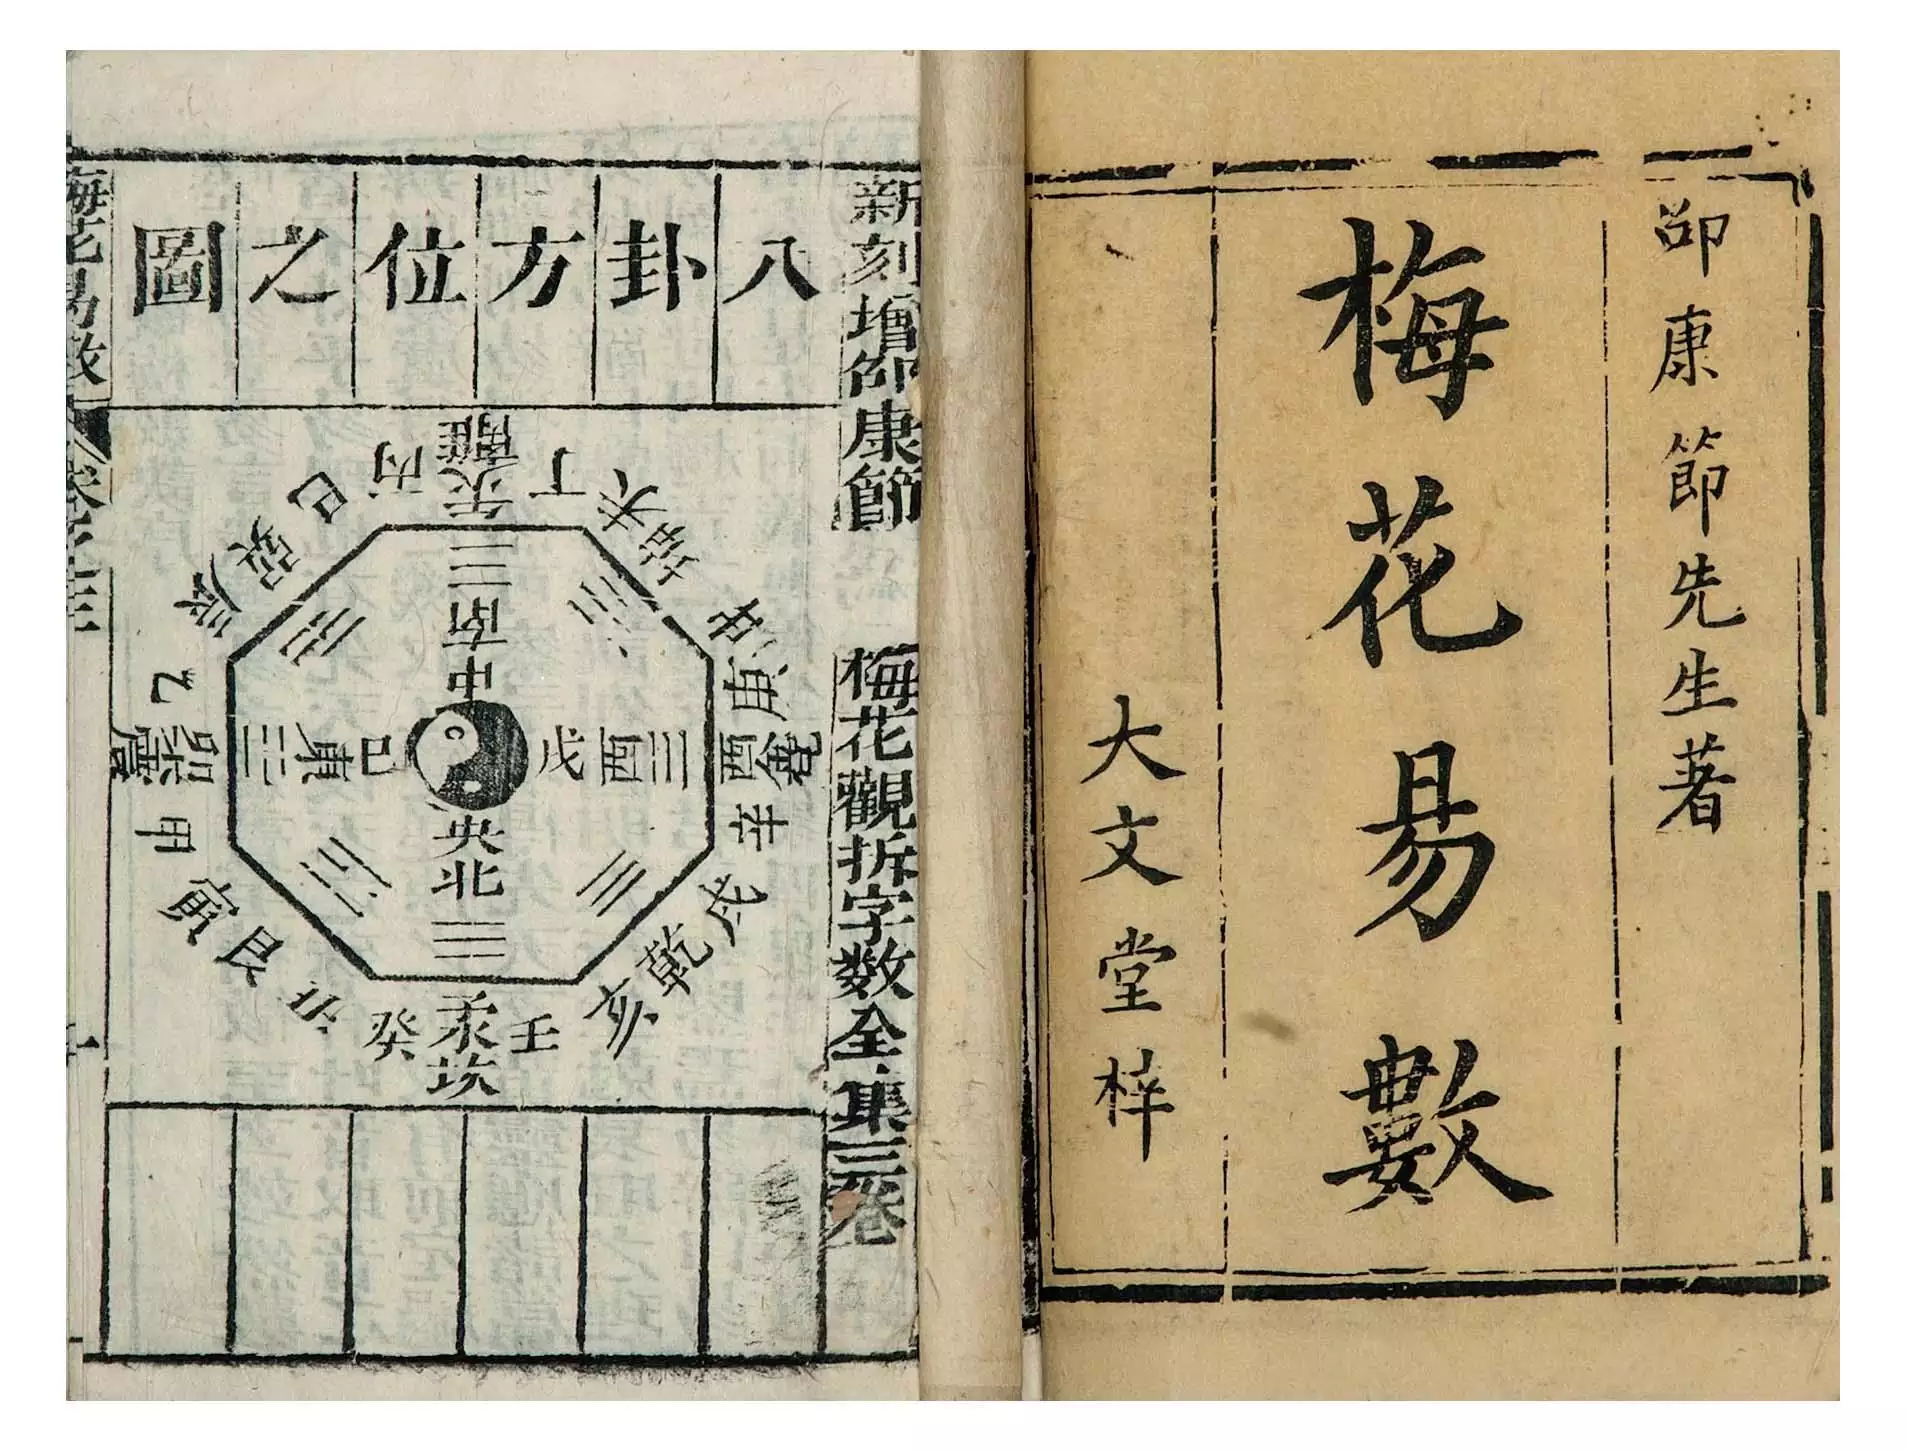 邵康節先生著
梅花易數
大文堂梓
新刻增邵康節
梅花觀拆字數全集三卷
八卦方位之圖
離
午火
丙
丁
未
坤
申
庚
酉
兌
辛
戌
乾
亥
壬
坎
癸
丑
艮
寅
甲
卯
震
乙
辰
巽
巳
南
中
東
巳
戊
西
央
北
梅花易數